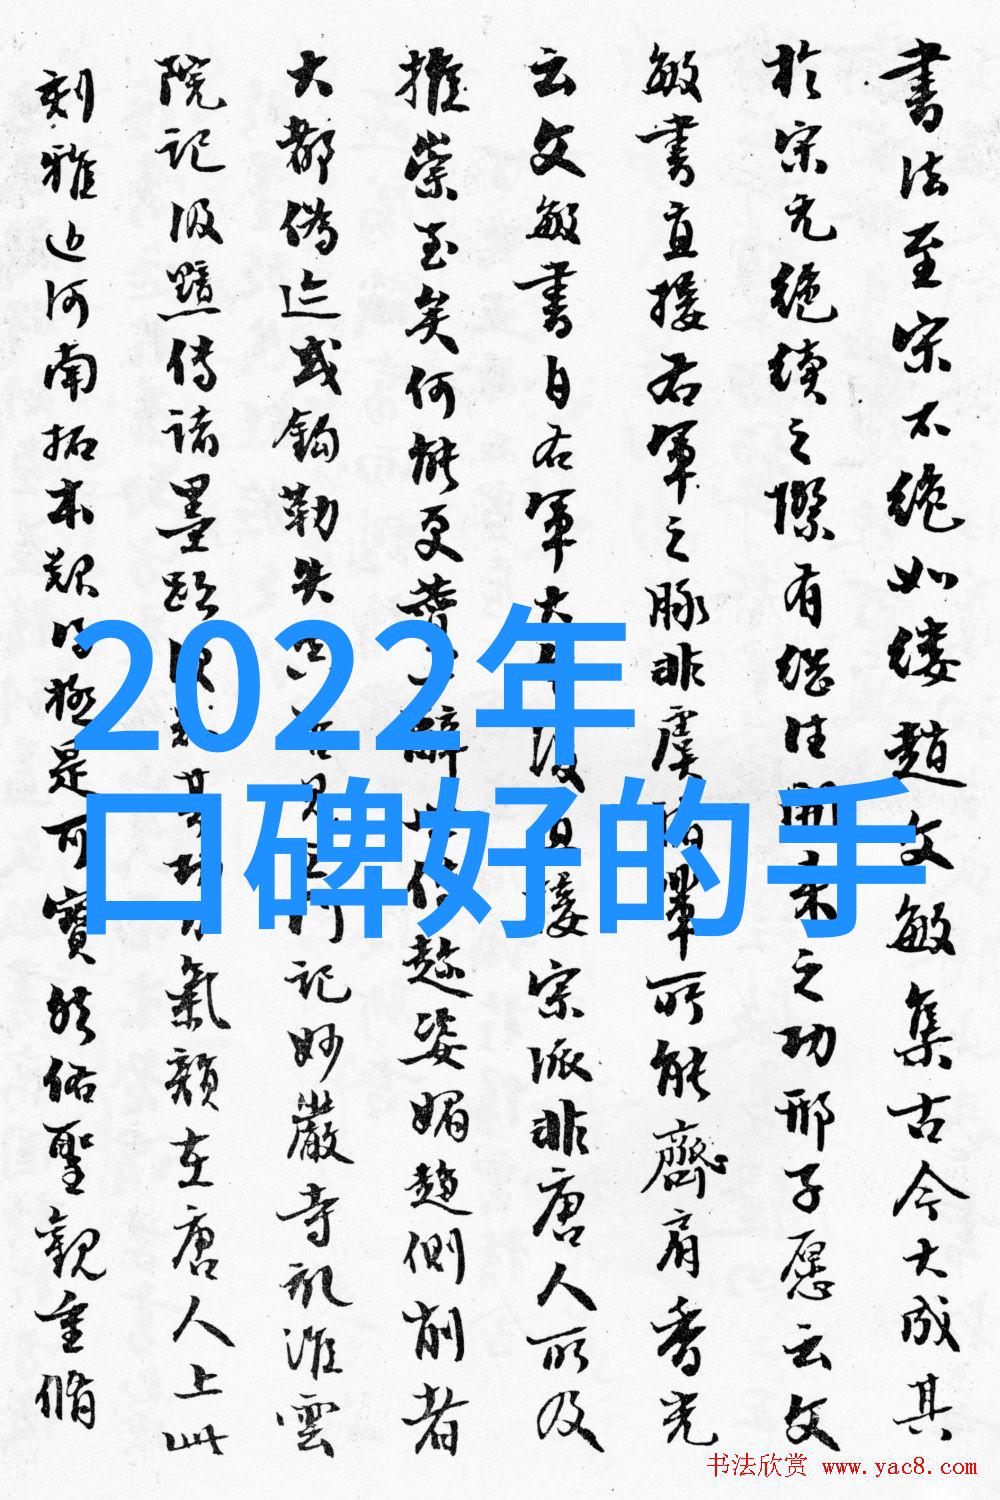 書法至宋不絶如縷趙文敏集古今大成其
於宋元絶續之際有繼往開來之功邢子愿云文
敏書直接右軍之脉非虞褚輩所能齊肩香光
云文敏書曰右軍大 直接宗派非唐人所及
推崇至矣何能更贊 辭 趁姿媚趙側削者
大都僞迹或鈎勒失 見 門記妙嚴寺記淮雲
院記汲黯傳諸墨 氣韻在唐人上此
刻雅近河南拓本 是可寶 聖觀重脩
2022年
口碑好的手
书法欣赏 www.yac8.com